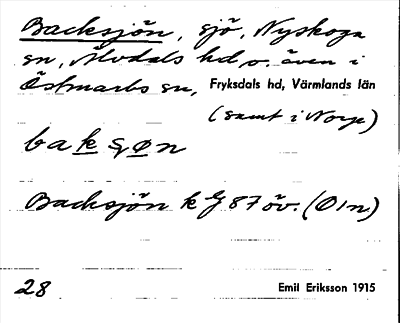 Backsjön, sjö, Nyskoga
sn, Älvdals hd o. även i
Östmarks sn, Fryksdals hd, Värmlands län
(samt i Norge)
Backsjön k G 87 öv. (Ö1n)
28 Emil Eriksson 1915